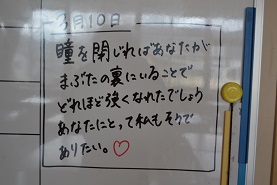 3月10日
瞳を閉じればあなたが
まぶたの裏にいることで
どれほど強くなれたでしょう
あなたにとって私もそうで
ありたい。♡